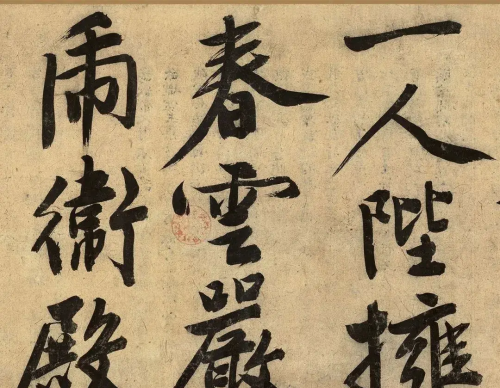 一人陛擁
春雲嚴
衛殿